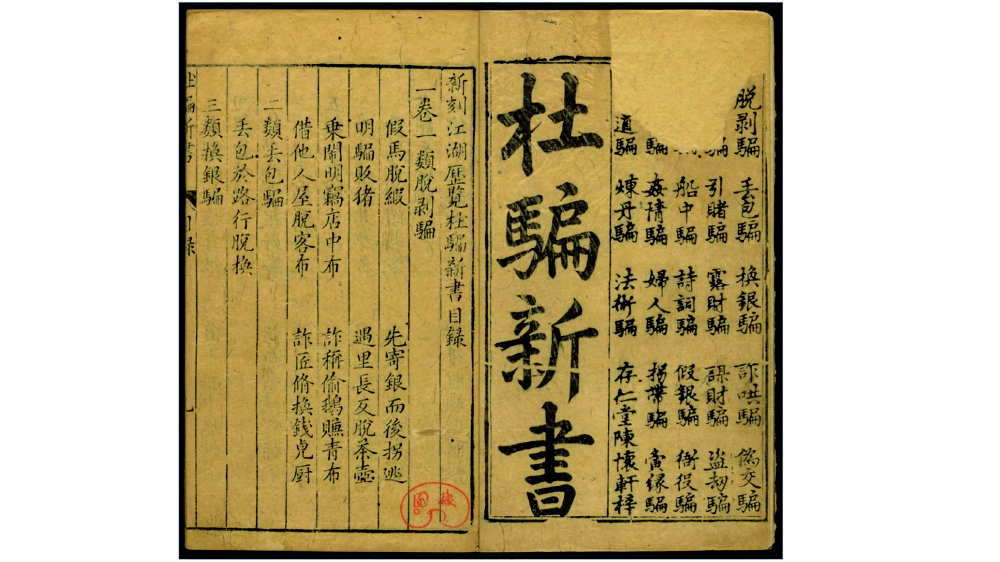 脱剥騙 丢包騙 換銀騙 詐哄騙 偽交騙
騙 引賭騙 露財騙 謀財騙 盜劫騙
船中騙 詩詞騙 假銀騙 衙役騙
騙 姦情騙 婦人騙 拐帶騙 緣騙
道騙 煉丹騙 法術騙 存仁堂陳懷軒梓
杜騙新書
新刻江湖歷覽杜騙新書目録
一卷一類脫剥騙
假馬脫緞 先寄銀而後拐逃
明騙販猪 遇里長反脫茶壺
乗鬧明竊店中布 詐稱偷鵝賺青布
借他人屋脫客布 詐匠修換錢皃厨
二類丢包騙
丢包於路行脫換
三類換銀騙
杜騙新書 目録